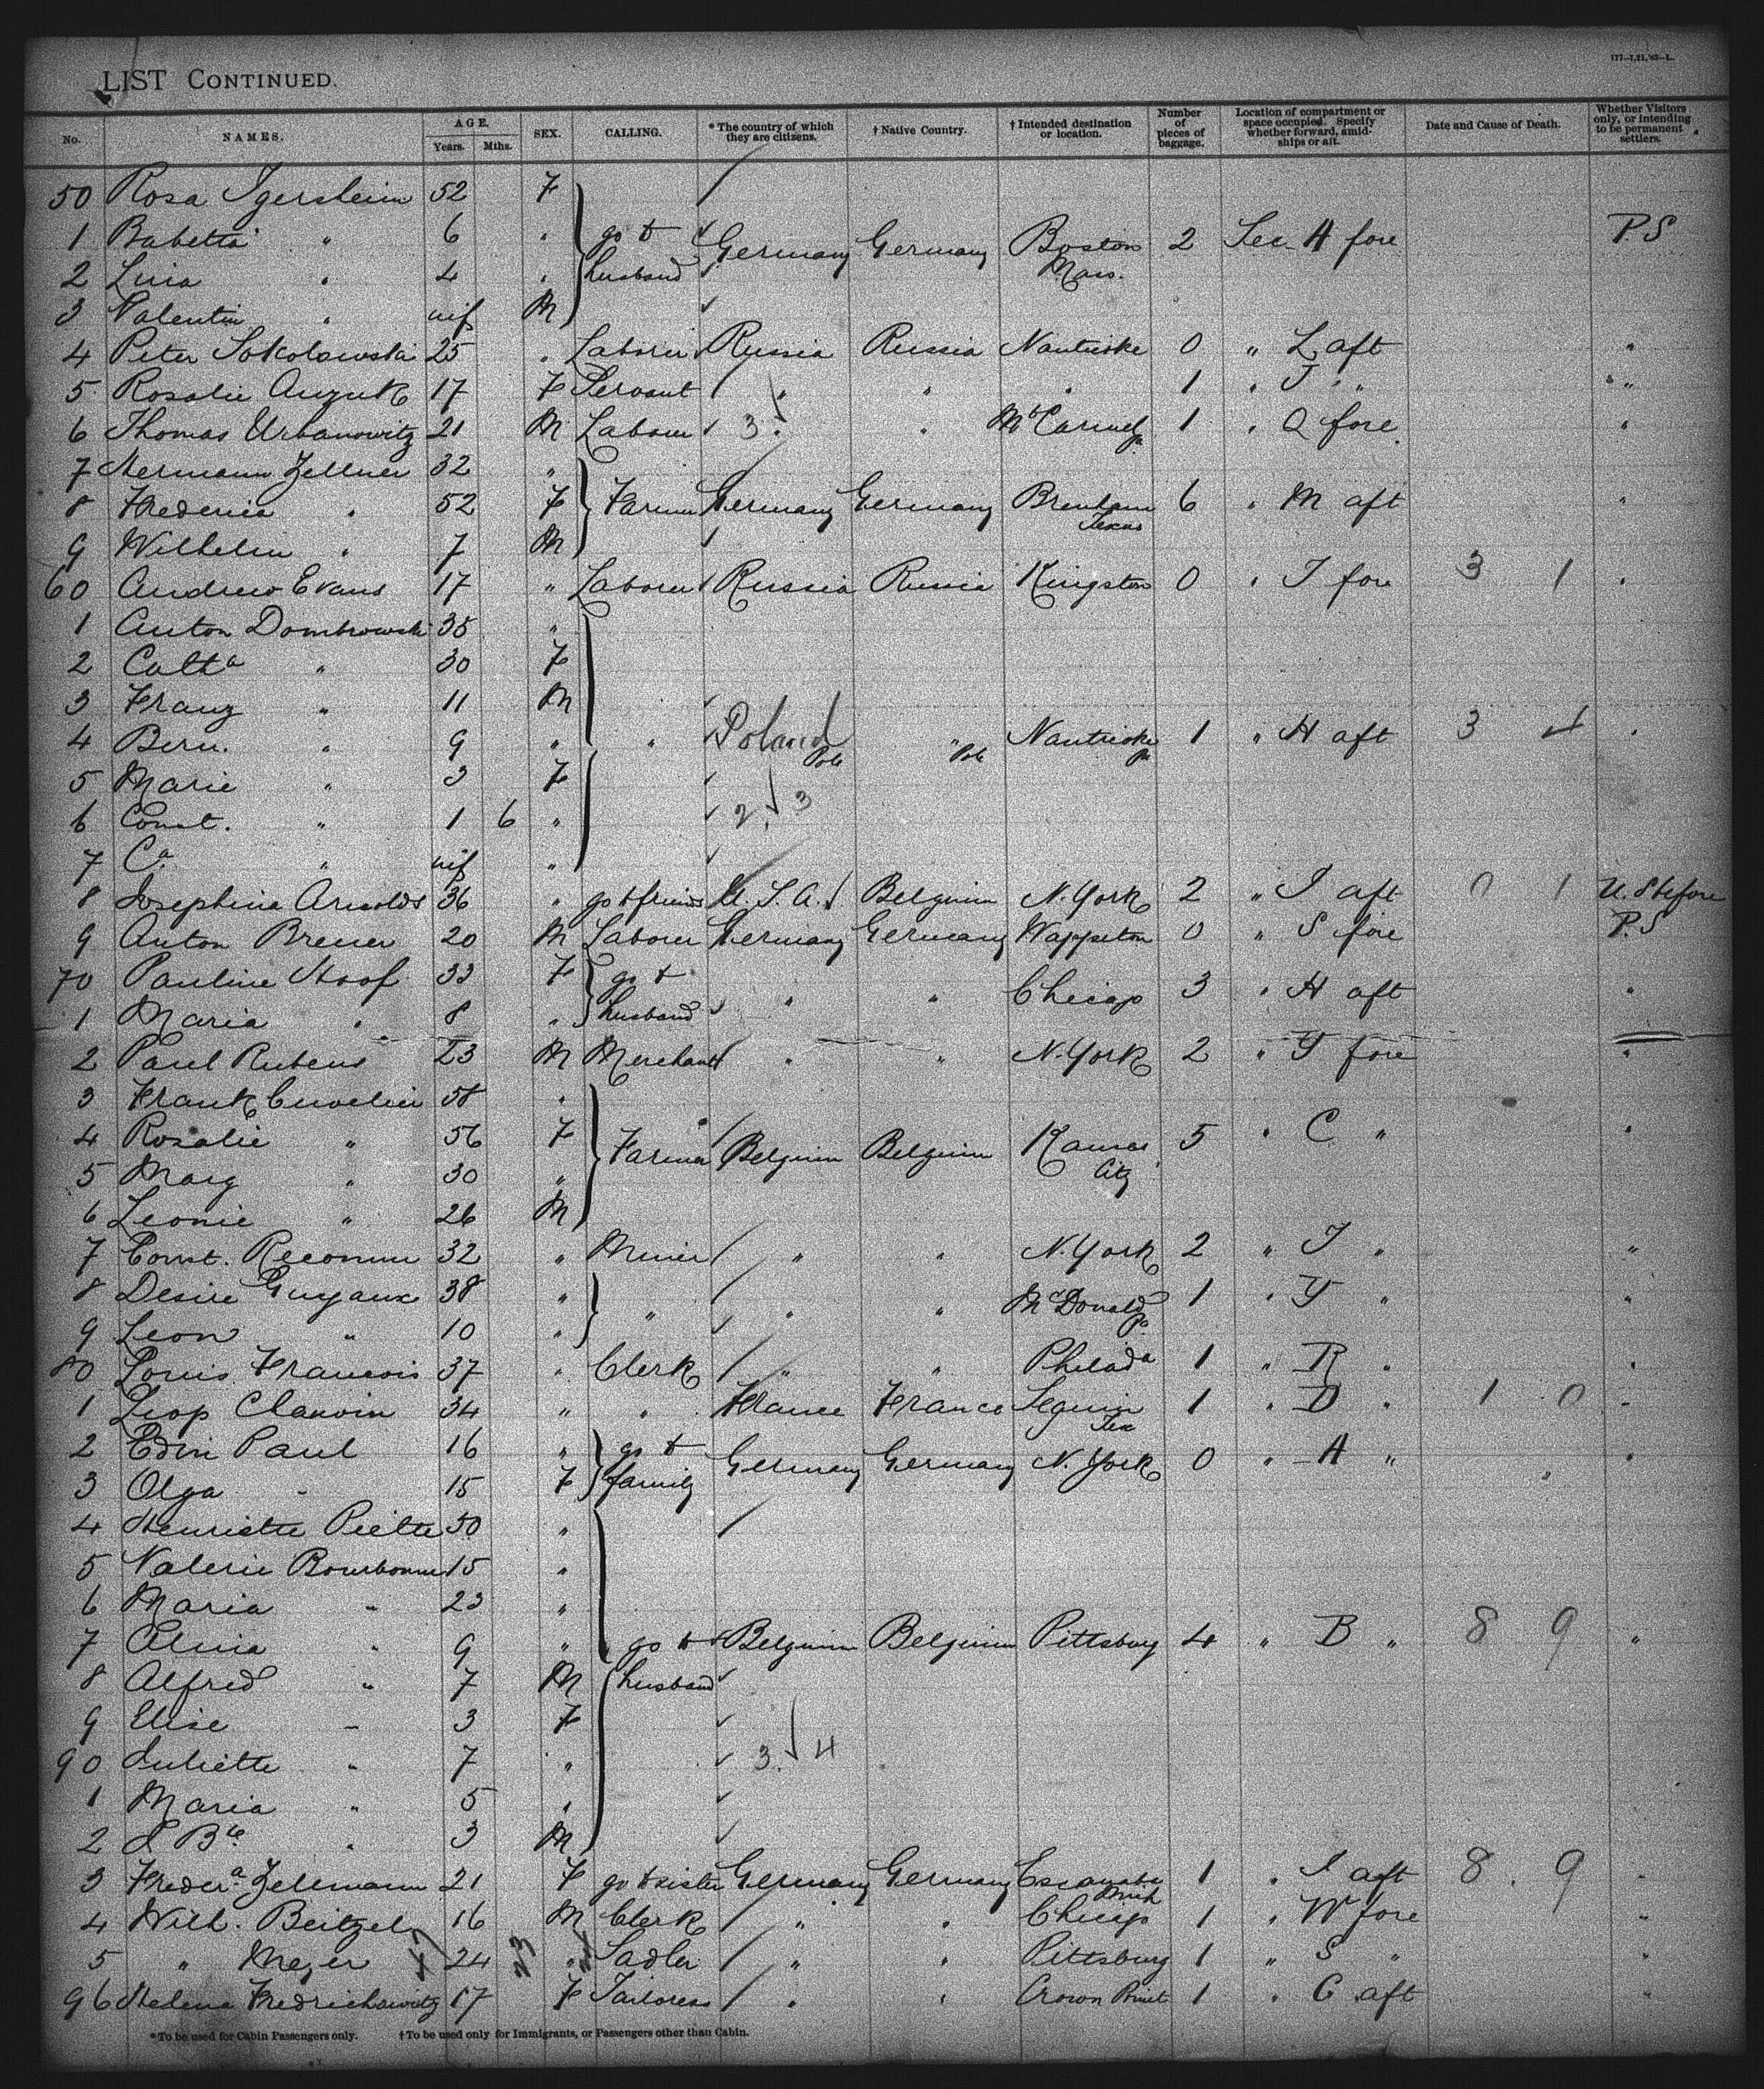 LIST CONTINUED.
No. NAMES. AGE. Years. Mths. SEX. CALLING. * The country of which they are citizens. † Native Country. † Intended destination or location. Number of pieces of baggage. Location of compartment or space occupied. Specify whether forward, amidships or aft. Date and Cause of Death. Whether Visitors only, or intending to be permanent settlers.
50 Rosa Igersheim 52 F
1 Babetta " 6 " go to Germany Germany Boston 2 Sec H fore P.S
2 Lina " 4 " husband Mass.
3 Valentin " inf M
4 Peter Sokolowski 25 " Laborer Russia Russia Nanticoke 0 " L aft "
5 Rosalie 17 F Servant " " " 1 " J " "
6 Thomas Urbanowitz 21 M Labour 3 " Mt Carmel Pa 1 " Q fore "
7 Hermann Zellner 32 "
8 Frederica " 52 F Farmer Germany Germany Brenham Texas 6 " M aft "
9 Wilhelm " 7 M
60 Andrew Evans 17 " Laborer Russia Russia Kingston 0 " J fore 3 1 "
1 Anton Dombrowski 35 "
2 Cath^a " 30 F
3 Franz " 11 M
4 Bern. " 9 " " Poland Pole " Pole Nanticoke Pa 1 " H aft 3 4 "
5 Marie " 3 F
6 Const. " 1 6 " 2 3
7 C^a " inf "
8 Josephine Arnolds 36 " go to friends U.S.A. Belgium N. York 2 " I aft 0 1 U.S before
9 Anton Breuer 20 M Laborer Germany Germany Wappeton 0 " S fore P.S
70 Pauline Stoof 33 F go to " " Chicago 3 " H aft "
1 Maria " 8 " husband
2 Paul Rubens 23 M Merchant " " N. York 2 " Y fore "
3 Frank Cuvelier 58 "
4 Rosalie " 56 F Farmer Belgium Belgium Kansas City 5 " C " "
5 Marg " 30 "
6 Leonie " 26 M
7 Const. 32 " Miner " " N. York 2 " J " "
8 Desire Guyaux 38 " " " " McDonald Pa 1 " Y " "
9 Leon " 10 "
80 Louis Francois 37 " Clerk " " Philad^a 1 " R " "
1 Leop Clauvin 34 " " France France Seguin Tex 1 " D " 1 0 "
2 Edm Paul 16 " go to Germany Germany N. York 0 " A " "
3 Olga " 15 F family
4 Henriette Piette 50 "
5 Valerie Bourbonne 15 "
6 Maria " 23 "
7 Alina " 9 " go to Belgium Belgium Pittsburg 4 " B " 8 9 "
8 Alfred " 7 M husband
9 Elise " 3 F
90 Juliette " 7 " 3 4
1 Maria " 5 "
2 J B^te " 3 M
3 Freder^a Zellmann 21 F go to sister Germany Germany Escanaba Mich 1 " I aft 8 9 "
4 Wilh. Beitzel 16 M Clerk " " Chicago 1 " W fore "
5 " Meyer 24 " Sadler " " Pittsburg 1 " S " "
96 Helene Fredrichowitz 17 F Tailoress " " Crown Point 1 " C aft "
*To be used for Cabin Passengers only. †To be used only for Immigrants, or Passengers other than Cabin.